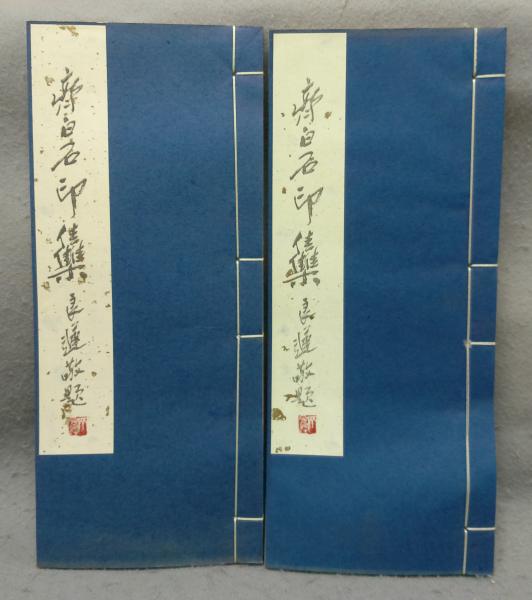 齊白石印集 良遲敬題
齊白石印集 良遲敬題